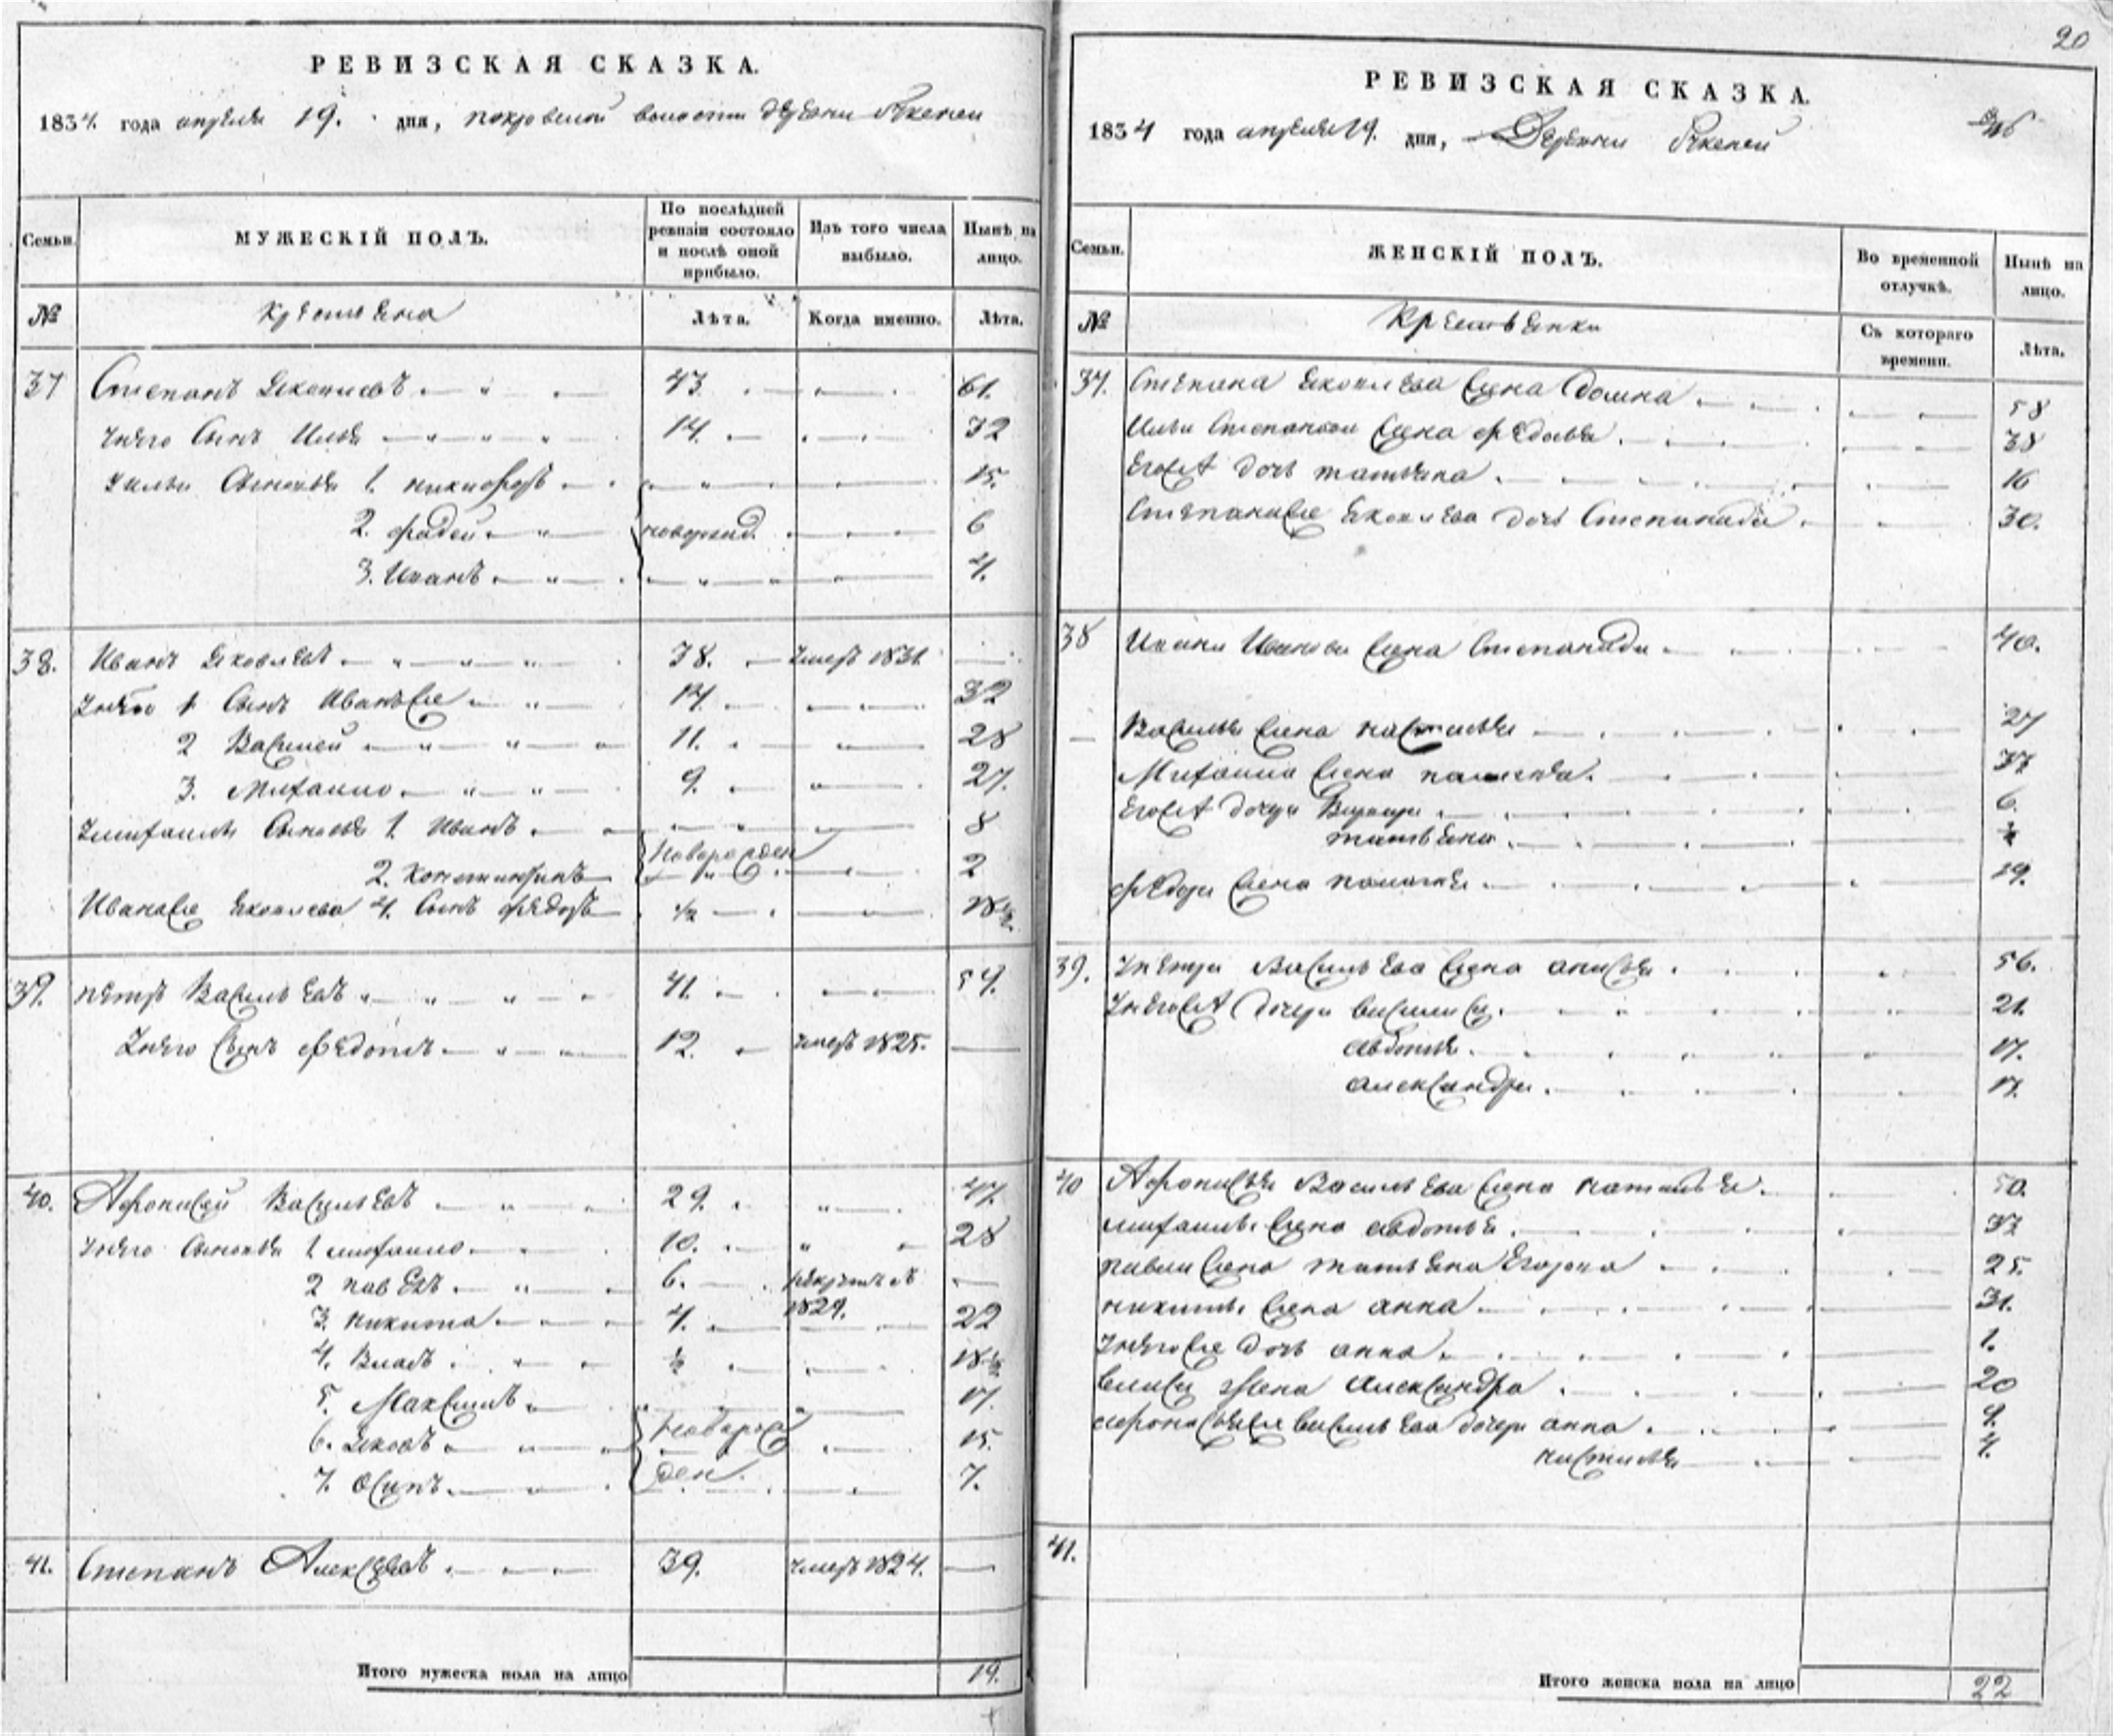 РЕВИЗСКАЯ СКАЗКА.
1834. года апреля 19. дня, покровской волости деревни
Семьи.
МУЖЕСКІЙ ПОЛЪ.
По послѣдней ревизіи состояло и послѣ оной прибыло.
Изъ того числа выбыло.
Нынѣ на лицо.
№
Крестьяна
Лѣта.
Когда именно.
Лѣта.
37 Степанъ Яковлевъ 43. 61.
Унего Сынъ Илья 14. 32
Уильи Сыновья 1. никифоръ 15.
2. фадей новорожд. 6
3. Иванъ 4.
38. Иванъ Яковлевъ 38. Умеръ 1831.
Унего 1 Сынъ Иванъ 14. 32
2 Василей 11. 28
3. Михаило 9. 27.
Умихаилы Сыновья 1. Иванъ 8
Новорожден
2. Константинъ 2
Ивана Яковлева 4. Сынъ федоръ ½ 18½.
39. петръ Васильевъ 41. 59.
Унего Сынъ федотъ 12. умеръ 1825.
40. Афонасей Васильевъ 29. 47.
Унего Сыновья 1 михаило 10. 28
2 павелъ 6. рекрутъ въ 1829.
3. никита 4. 22
4. Власъ ½ 18½
5. Максимъ 17.
6. Яковъ Новорож 15.
7. Осипъ ден. 7.
41. Степанъ Алексеевъ 39. умеръ 1824.
Итого мужеска пола на лицо 19.
20
РЕВИЗСКАЯ СКАЗКА.
1834 года апреля 19. дня, Деревни
Семьи.
ЖЕНСКІЙ ПОЛЪ.
Во временной отлучкѣ.
Нынѣ на лицо.
№
Крестьянки
Съ котораго времени.
Лѣта.
37. Степана Яковлева жена Домна 58
Ильи Степанова жена федосья 38
Егожъ дочь татьяна 16
Степана Яковлева дочь Степанида 30.
38 Ивана Иванова жена Степанида 40.
Василья жена настасья 27
Михаила жена 37
Егожъ дочери Варвара 6.
татьяна
федора жена палагея 19.
39. Упетра Васильева жена анисья 56.
Унегожъ дочери василиса 21.
авдотья 17.
александра
40 Афонасья Васильева жена наталья 50.
михаилы жена авдотья 37
павла жена татьяна Егорова 25.
никиты жена анна 31.
Унего дочь анна 1.
власа жена Александра 20
афонасья васильева дочери анна 9.
настасья 4.
41.
Итого женска пола на лицо 22